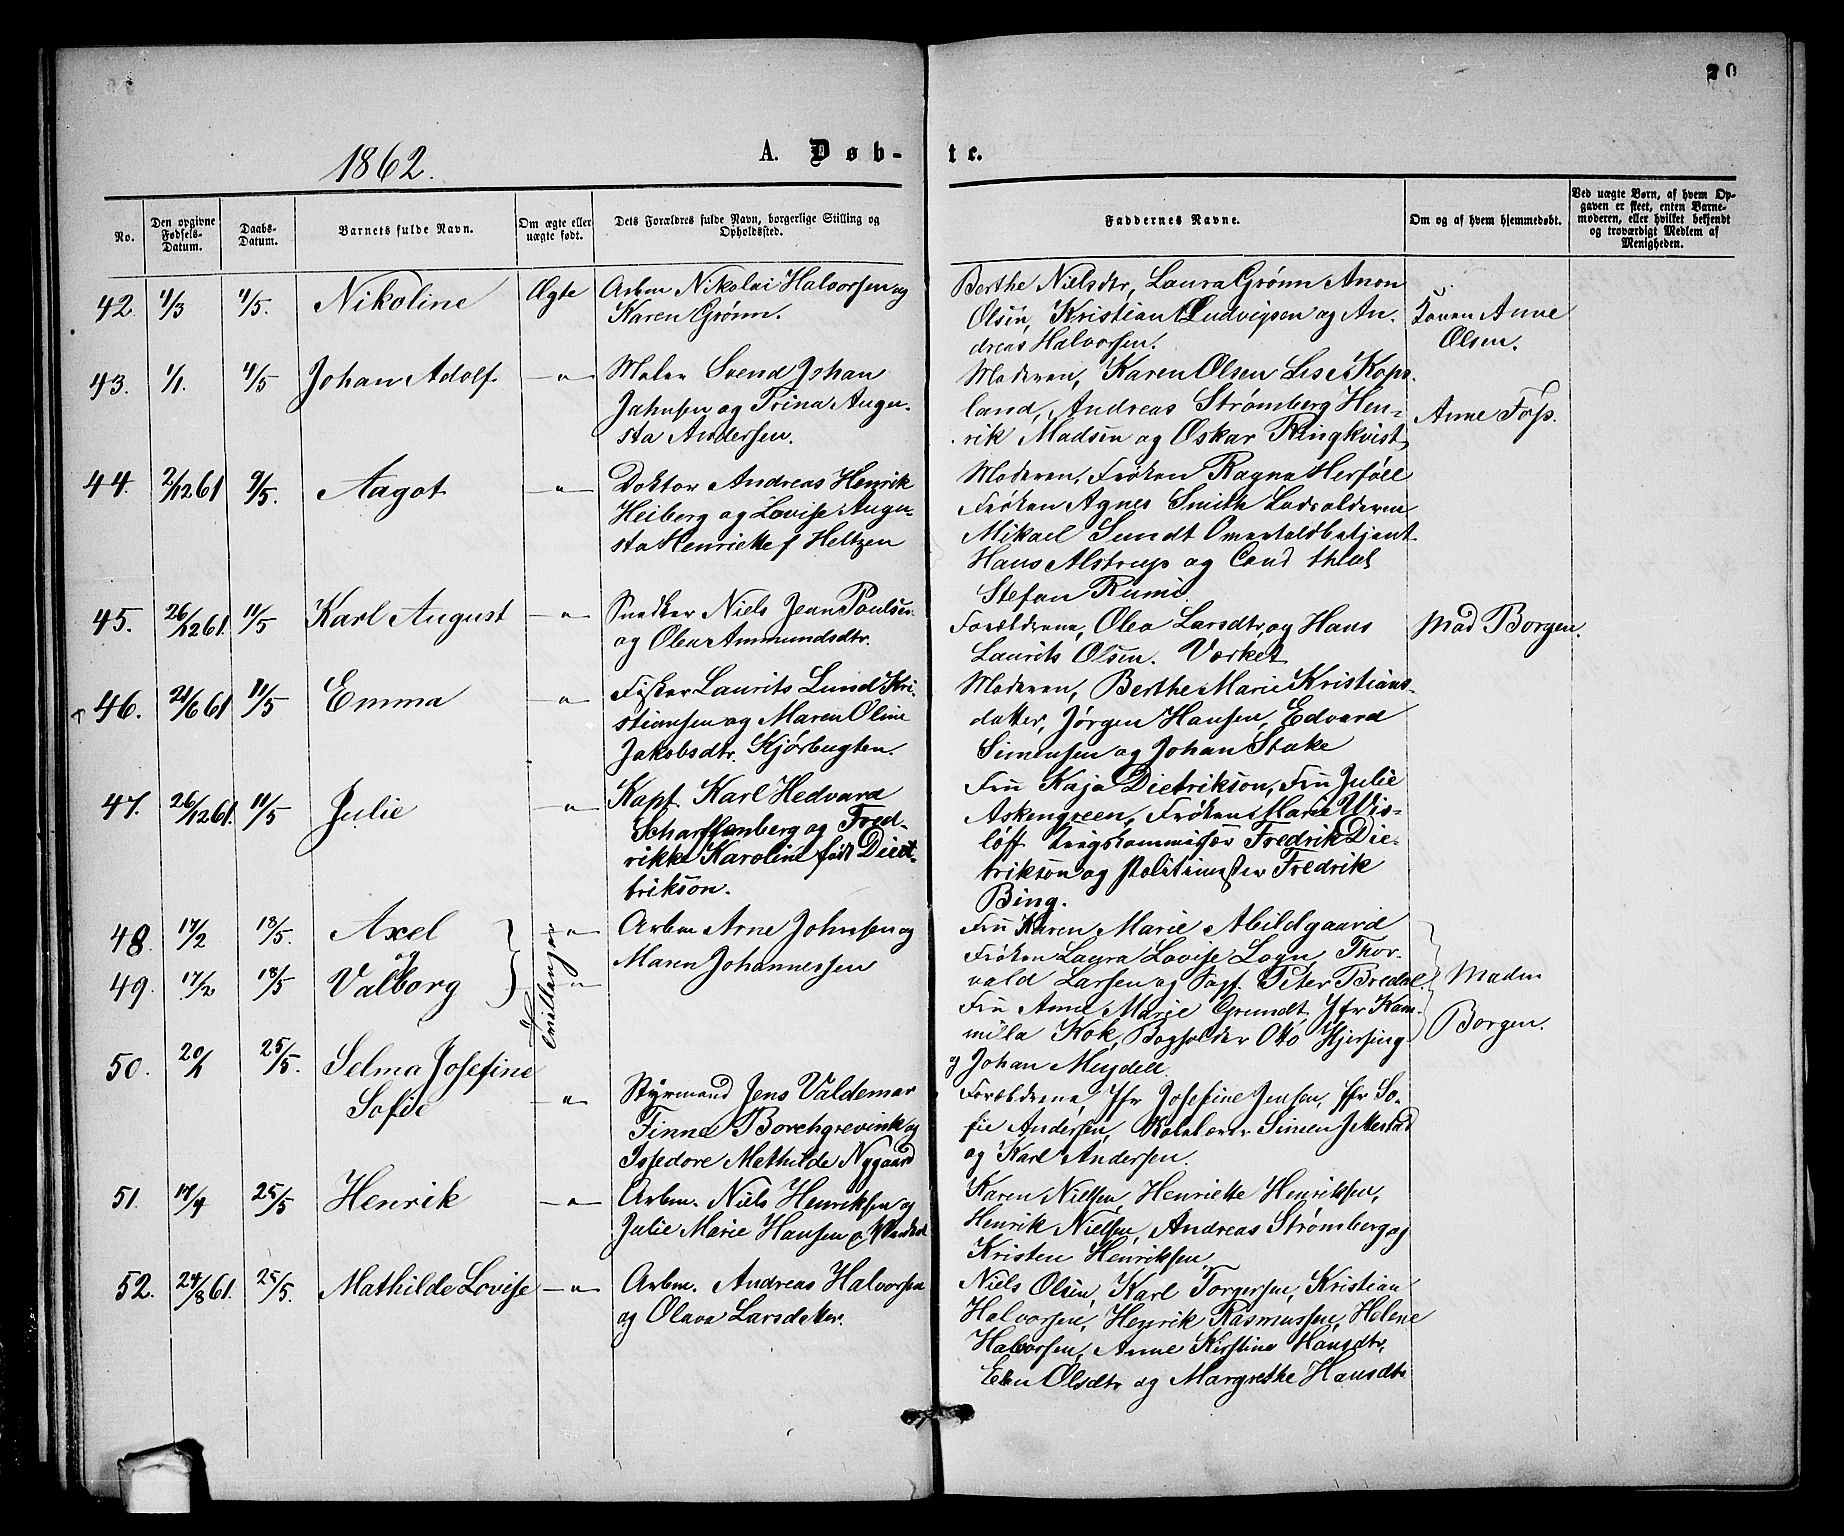 20
1862.
A. Døb-
te.
No.
Den opgivne Fødsels-Datum.
Daabs-Datum.
Barnets fulde Navn.
Om ægte eller uægte født.
Dets Forældres fulde Navn, borgerlige Stilling og Opholdssted.
Faddernes Navne.
Om og af hvem hjemmedøbt.
Ved uægte Børn, af hvem Opgaven er skeet, enten Barnemoderen, eller hvilket bekjendt og troværdigt Medlem af Menigheden.
42. 1/3 4/5. Nikoline Ægte Arbm Nikolai Halvorsen og
Karen Grønn.
Berthe Nielsdtr, Laura Grønn Anon
Olsen, Kristian Ludvigsen og An-
dreas Halvorsen.
Konen Anne
Olsen.
43. 1/1. 4/5 Johan Adolf -"- Maler Svend Johan
Jahnsen og Trina Augu-
sta Andersen.
Moderen, Karen Olsen Lise Kops-
land, Andreas Strømberg Hen-
rik Madsen og Oskar Ringkvist
Anne Foss.
44. 2/12 61 9/5. Aagot -"- Doktor Andreas Henrik
Heiberg og Lovise Augu-
sta Henriette f Heltzen
Moderen, Frøken Ragna Herføll
Frøken Agnes Smith Lodsolderm
Mikael Sundt
Hans Alstrup og Cand theol
Stefan
45. 26/12 61. 11/5 Karl August -"- Snedker Niels Jenn Poulsen
og Olea Ammundsdtr.
Forældrene, Olea Larsdtr og Hans
Laurits Olsen. Værket
Mad Borgen.
46. 21/6 61 11/5 Emma -"- Fisker Laurits Lund Kri-
stiansen og Maren Oline
Jakobsdtr. Kjørbugten.
Moderen, Berthe Marie Kristians-
datter, Jørgen Hansen, Edvard
Simensen og Johan Stake
47. 26/12 61. 11/5 Julie -"- Kapt Karl Hedvard
Scharffenberg og Fred-
rikke Karoline født Diet-
trikson.
Fru Kaja Dietrikson, Fru Julie
Askengreen, Frøken Marie Wis-
løff Krigskommissær Fredrik Die-
trikson og Politimester Fredrik
Bing.
48. 17/2 18/5. Axel -"- Arbm Arne Johnsen og
og
Maren Johannessen
49. 17/2 18/5 Valborg -"-
Tvillinger
Fru Karen Marie Abildgaard
Frøken Laura Lovise Logn, Thor-
vald Larsen og Peter Bredal.
Fru Anne Marie Grundt Jfr Kam-
milla Kok, Bogholder Otto Hjersing
og Johan Meydell
Madm
Borgen.
50. 20/1 25/5. Selma Josefine
Sofie -"- Styrmand Jens Valdemar
Finne Borchgrevink og
Issedore Mathilde Nygaard
Forældrene, Jfr Josefine Jensen, Jfr So-
fie Andersen, Simen Jellestad
og Karl Andersen.
51. 17/4 25/5 Henrik -"- Arbm. Niels Henriksen og
Julie Marie Hansen
Karen Nielsen, Henriette Henriksen,
Henrik Nielsen, Andreas Strømberg og
Kristen Henriksen.
52. 24/8 61. 25/5. Mathilde Lovise -"- Arbm. Andreas Halvorsen
og Olava Larsdatter.
Niels Olsen, Karl Torgersen, Kristian
Halvorsen, Henrik Rasmussen, Helene
Halvorsen, Anne Kirstine Hansdtr,
Elen Olsdtr og Margrethe Hansdtr